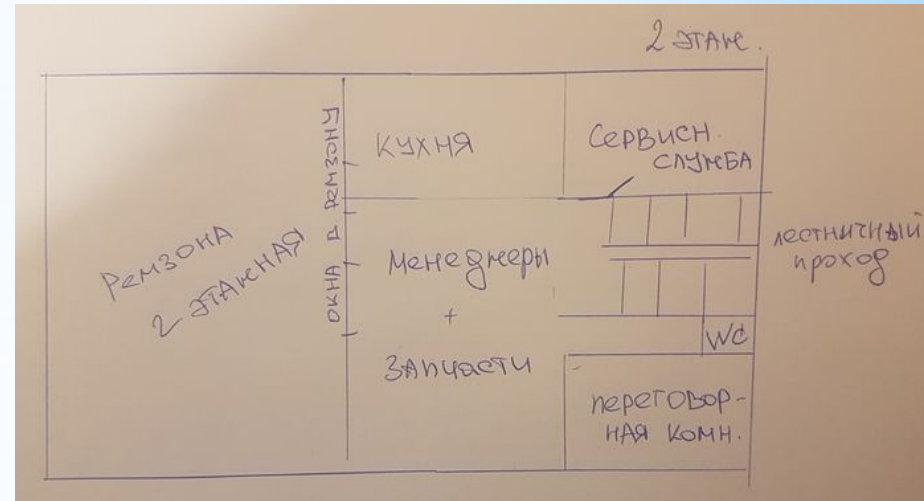 2 этаж.
Ремзона
2 этажная
окна в ремзону
кухня
Сервисн.
служба
менеджеры
+
запчасти
лестничный
проход
WC
переговор-
ная комн.